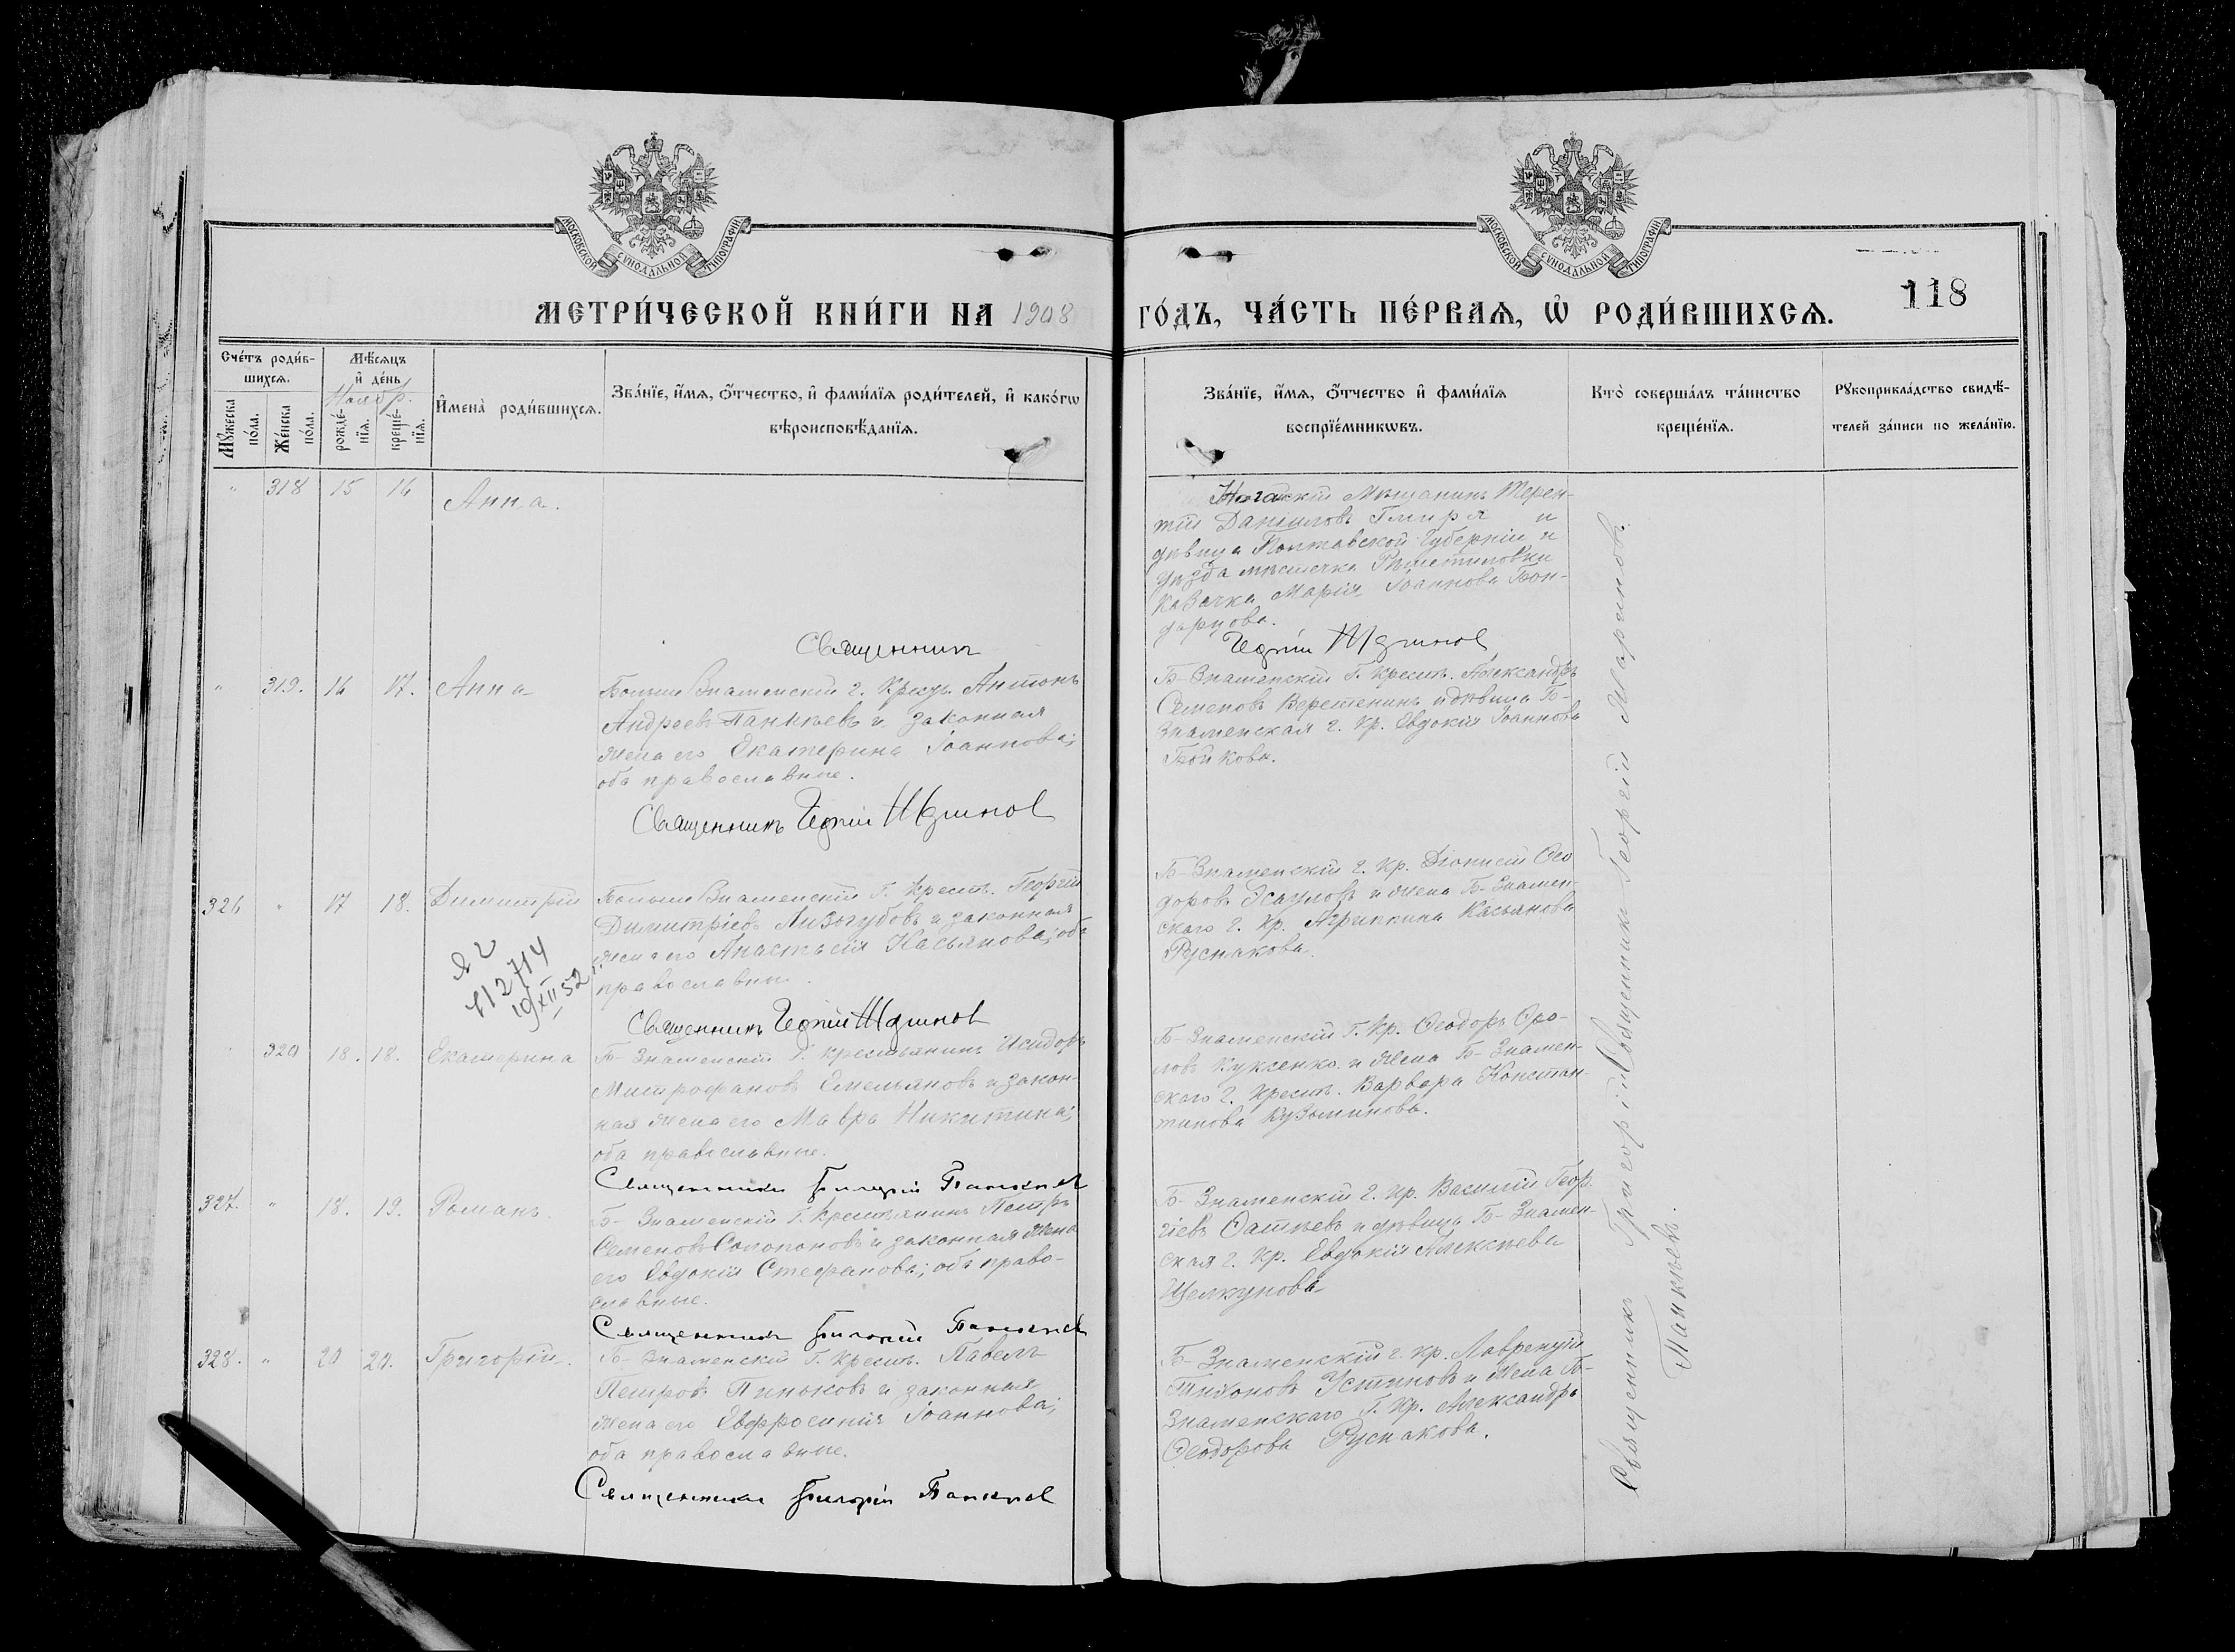 МОСКОВСКОЙ СѴНОДАЛЬНОЙ ТИПОГРАФІИ
МОСКОВСКОЙ СѴНОДАЛЬНОЙ ТИПОГРАФІИ
118
МЕТРИ́ЧЕСКОЙ КНИ́ГИ НА 1908 ГО́ДЪ, ЧА́СТЬ ПЕ́РВАѦ, Ѡ҆ РОДИ́ВШИХСѦ.
Сче́тъ роди́в-
шихсѧ.
Мꙋ́жеска по́ла.
Же́нска по́ла.
Мѣ́сѧцъ
и҆ де́нь
Ноябр.
рожде́-
нїѧ.
креще́-
нїѧ.
И҆мена̀ роди́вшихсѧ.
Зва́нїе, и҆́мѧ, ѻ҆́тчество, и҆ фами́лїѧ роди́телей, и҆ како́гѡ
вѣроисповѣ́данїѧ.
Зва́нїе, и҆́мѧ, ѻ҆́тчество и҆ фами́лїѧ
воспрїе́мникѡвъ.
Кто̀ соверша́лъ та́инство
креще́нїѧ.
Рꙋкоприкла́дство свидѣ́-
телей за́писи по жела́нїю.
" 318 15 16 Анна.
Ногайскій Мѣщанинъ Терен-
тій Даніиловъ Гмиря и
дѣвица Полтавской Губерніи и
уѣзда мѣстечка Рѣшетиловки
казачка Марія Іоаннова Бон-
дарцова.
Священникъ
" 319. 16 17. Анна
Больше Знаменскій г. Крест. Антонъ
Андреевъ Панкѣевъ и законная
жена его Екатерина Іоаннова;
оба православные.
Священникъ
Б-Знаменскій Г. Крест. Александръ
Семеновъ Веретенинъ и дѣвица Б-
Знаменская г. Кр. Евдокія Іоаннова
Бойкова.
326 " 17 18. Димитрій
Больше Знаменскій Г. Крест. Георгій
Димитріевъ Лизогубовъ и законная
жена его Анастасія Касьянова; оба
православны.
Священникъ
Б-Знаменскій г. Кр. Діонисій Ѳео
доровъ Эсауловъ и жена Б-Знамен-
скаго г. Кр. Агриппина Касьянова
Руснакова.
112714
19 XII 52
320 18. 18. Екатерина
Б-Знаменскій Г. крестьянинъ Исидоръ
Митрофановъ Емельяновъ и закон-
ная жена его Мавра Никитина;
оба православные.
Священникъ Григорій Панкѣев
Б-Знаменскій Г. Кр. Ѳеодоръ
Куксенко и жена Б-Знамен-
скаго г. Крест. Варвара Констан-
тинова Кузьминова.
327. " 18. 19. Романъ.
Б-Знаменскій Г. Крестьянинъ Петръ
Семеновъ Солопоновъ и законная жена
его Евдокія Стефанова; оба право-
славные.
Священникъ Григорій Панкѣев
Б-Знаменскій г. Кр. Василій Геор
гіевъ Фатѣевъ и дѣвица Б-Знамен-
ская г. Кр. Евдокія Алексѣева
Щелкунова
328. " 20 20. Григорій.
Б-Знаменскій Г. Крест. Павелъ
Петровъ Пиньковъ и законная
жена его Евфросинія Іоаннова;
оба православные.
Священникъ Григорій Панкѣев
Б-Знаменскій г. Кр. Лаврентій
Тихоновъ Устиновъ и жена Б-
Знаменскаго Г. Кр. Александра
Ѳеодорова Руснакова.
Священникъ Георгій Мариновъ.
Священникъ Григорій
Панкѣевъ.